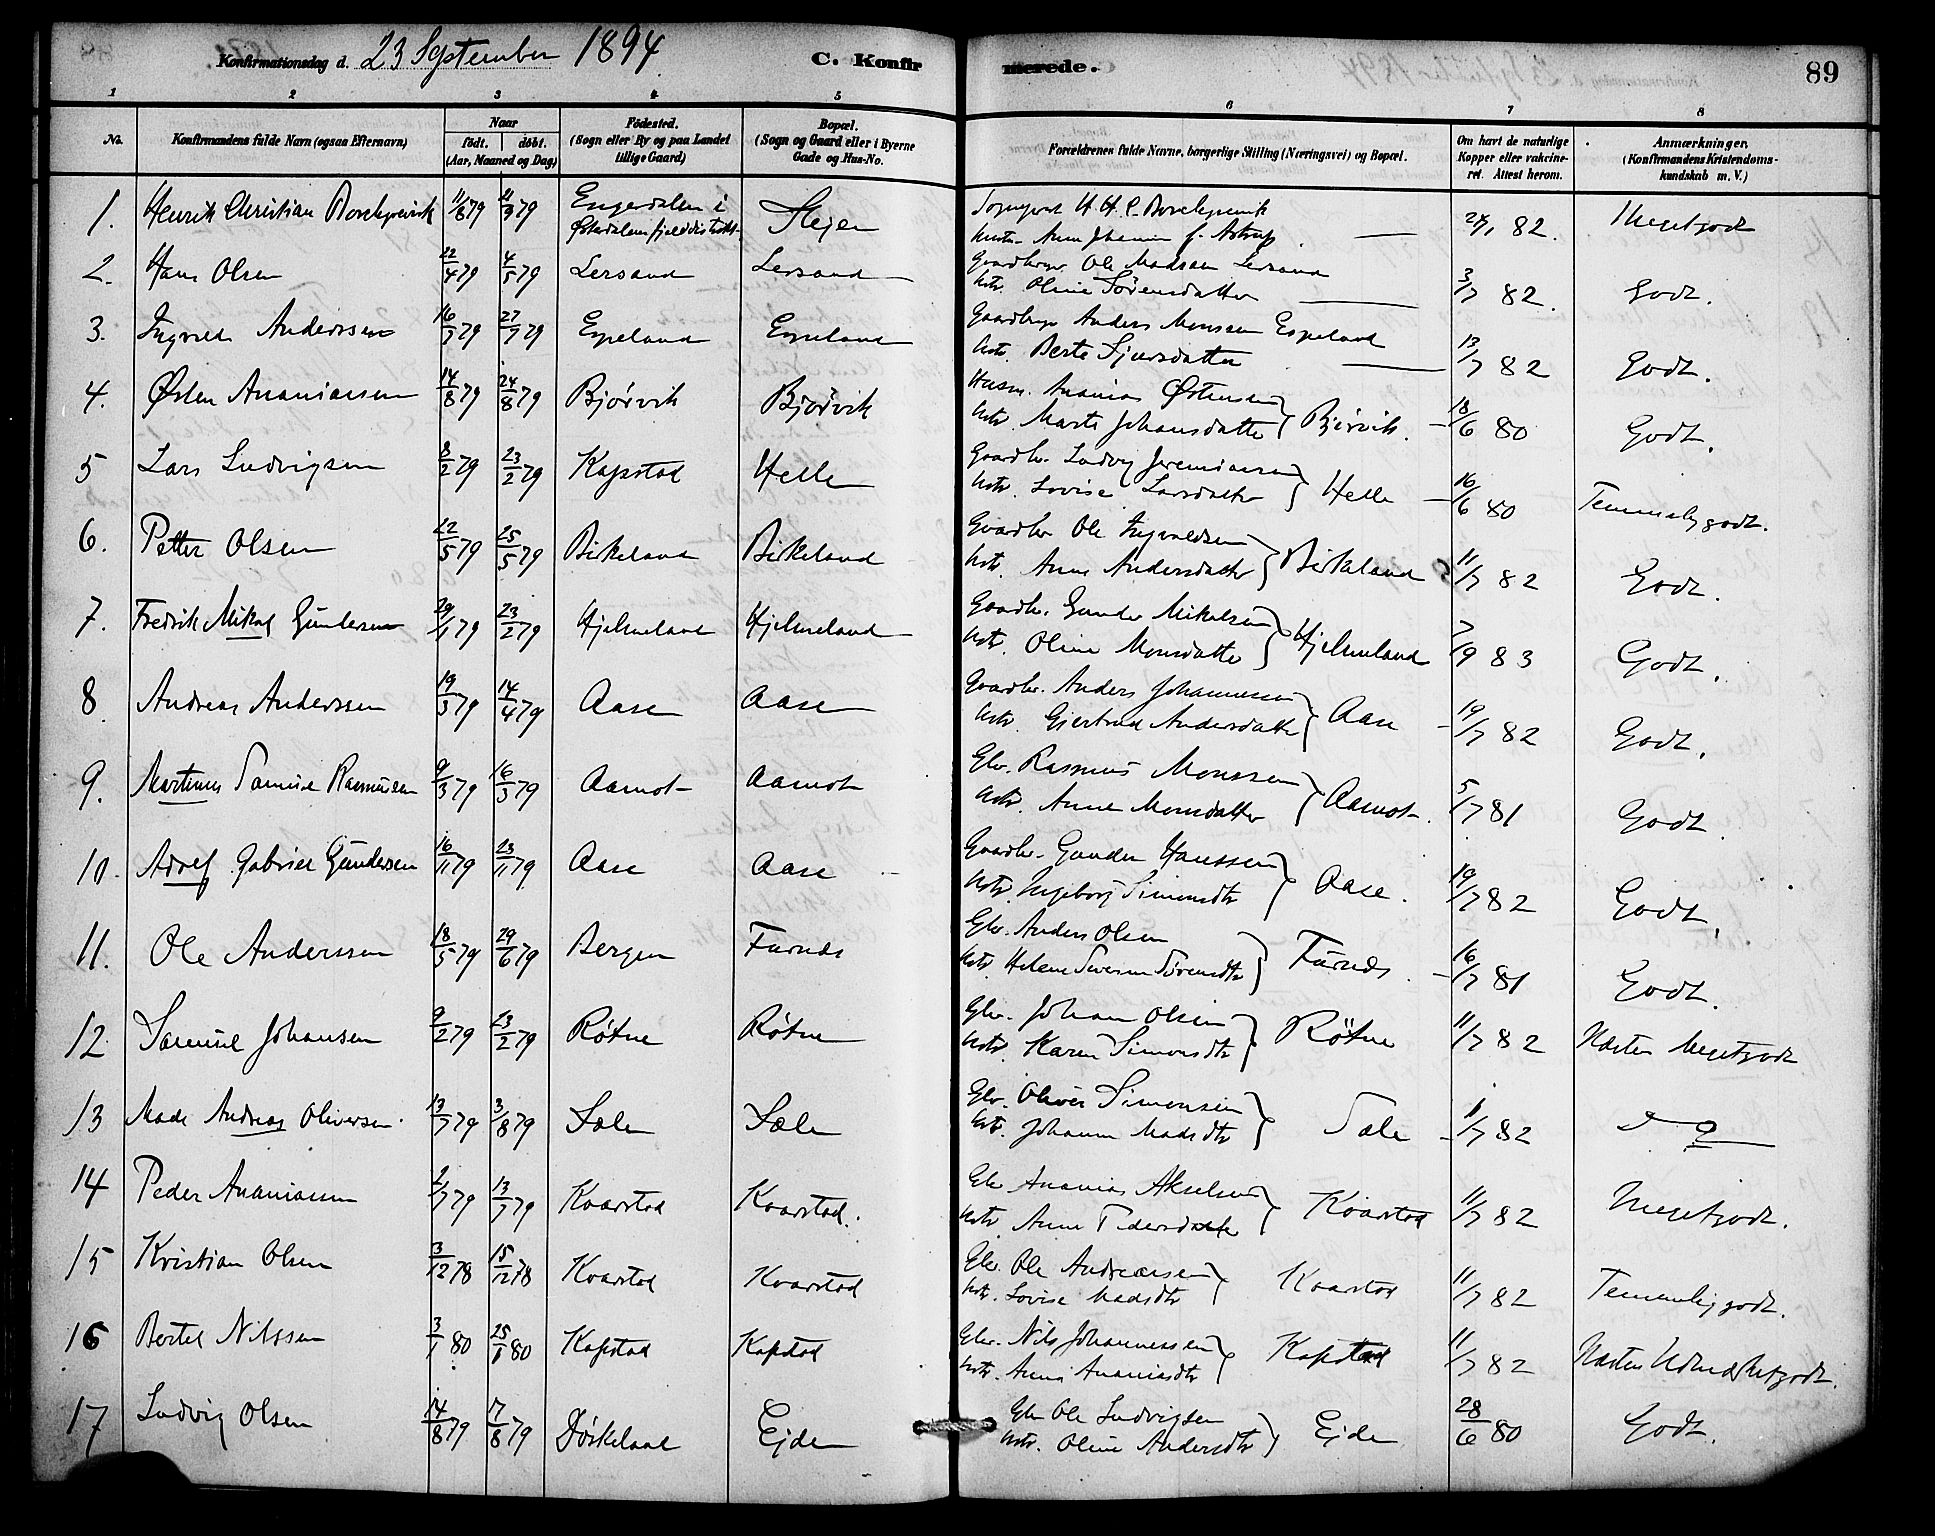 Konfirmationsdag d. 23 September 1894 C. Konfirmerede. 89
1 2 3 4 5 6 7 8
No. Konfirmandens fulde Navn (ogsaa Efternavn) Naar født. døbt. (Aar, Maaned og Dag) Fødested. (Sogn eller By og paa Landet tillige Gaard) Bopæl. (Sogn og Gaard eller i Byerne Gade og Hus-No. Forældrenes fulde Navne, borgerlige Stilling (Næringsvei) og Bopæl. Om havt de naturlige Kopper eller vakcineret. Attest herom. Anmærkninger. (Konfirmandens Kristendomskundskab m. V.)
1. Henrik Christian Borchgrevink 11/8 79 21/9 79 Engerdalen i Østerdalens fjelddistrikt. Stejen Sognepræst H. H. C. Borchgrevink
Anna Johanna f. Astrup — 82. Megetgodt
2. Hans Olsen 22/4 79 4/5 79 Lersand Lersand Gaardbruger Ole Madssen Lersand
Hstr. Oline Sørensdatter — 3/7 82. Godt.
3. Ingvald Anderssen 16/7 79 27/7 79 Espeland Espeland Gaardbruger Anders Monssen Espeland
Hstr. Berte Sjursdatter — 13/7 82 Godt.
4. Østen Ananiassen 14/8 79 24/8 79 Bjørvik Bjørvik Husm. Ananias Østensen
Hstr. Marte Johansdatter } Bjørvik. 18/6 80 Godt.
5 Lars Ludvigsen 8/2 79 23/2 79 Kapstad Helle Gaardbr. Ludvig Jeremiassen
Hstr. Lovise Larsdatter } Helle 16/6 80 Temmeligodt.
6. Petter Olsen 22/5 79 25/5 79 Birkeland Birkeland Gaardbr Ole Ingvaldsen
Hstr. Anne Andersdatter } Birkeland 11/7 82 Godt.
7. Fredrik Mikal Gundersen 29/1 79 23/2 79 Hjelmeland Hjelmeland Gaardbr. Gunder Mikelsen
Hstr. Oline Monsdatter } Hjelmeland 7/9 83 Godt.
8. Andreas Anderssen 19/3 79 14/4 79 Aase Aase Gaardbr. Anders Johannessen
Hstr. Gjertrud Andersdatter } Aase 19/7 82 Godt.
9. Martinus Samuel Rasmussen 9/3 79 16/3 79 Aamot Aamot Gbr. Rasmus Monssen
Hstr. Anne Monsdatter } Aamot. 5/7 81 Godt.
10. Adolf Gabriel Gundersen 16/11 79 23/11 79 Aase Aase Gaardbr. Gunder Hanssen
Hstr. Ingeborg Simonsdtr } Aase. 19/7 82 Godt.
11. Ole Anderssen 18/5 79 29/6 79 Bergen Furnæs Gbr. Anders Olsen
Hstr. Helene Severine Sørensdtr } Furnæs. 16/7 81 Godt.
12 Samuel Johansen 9/2 79 23/2 79 Røtne Røtne Gbr. Johan Olsen
Hstr. Karen Simonsdtr } Røtne 11/7 82 Næsten Megetgodt
13 Mads Andreas Oliversen. 13/7 79 3/8 79 Sæle Sæle Gbr. Oliver Simonsen
Hstr. Johanne Madsdtr } Sæle 11/7 82
14 Peder Ananiassen 2/7 79 13/7 79 Kvarstad Kvarstad. Gbr Ananias Akselsen
Hstr. Anne Pedersdatter } Kvarstad 11/7 82 Megetgodt.
15 Kristian Olsen 3/12 78 15/12 78 Kvarstad Kvarstad Gbr. Ole Andreassen
Hstr. Lovise Madsdtr } Kvarstad 11/7 82 Temmeliggodt.
16 Bertel Nilssen 3/1 80 25/1 80 Kapstad Kapstad Gbr. Nils Johannessen
Hstr. Anne Ananiasdtr } Kapstad 11/7 82 Næsten Udmærketgodt.
17 Ludvig Olsen 14/8 79 17/8 79 Dørkeland Ejde Gbr Ole Ludvigsen
Hstr. Oline Andersdtr } Ejde 28/6 80 Godt.